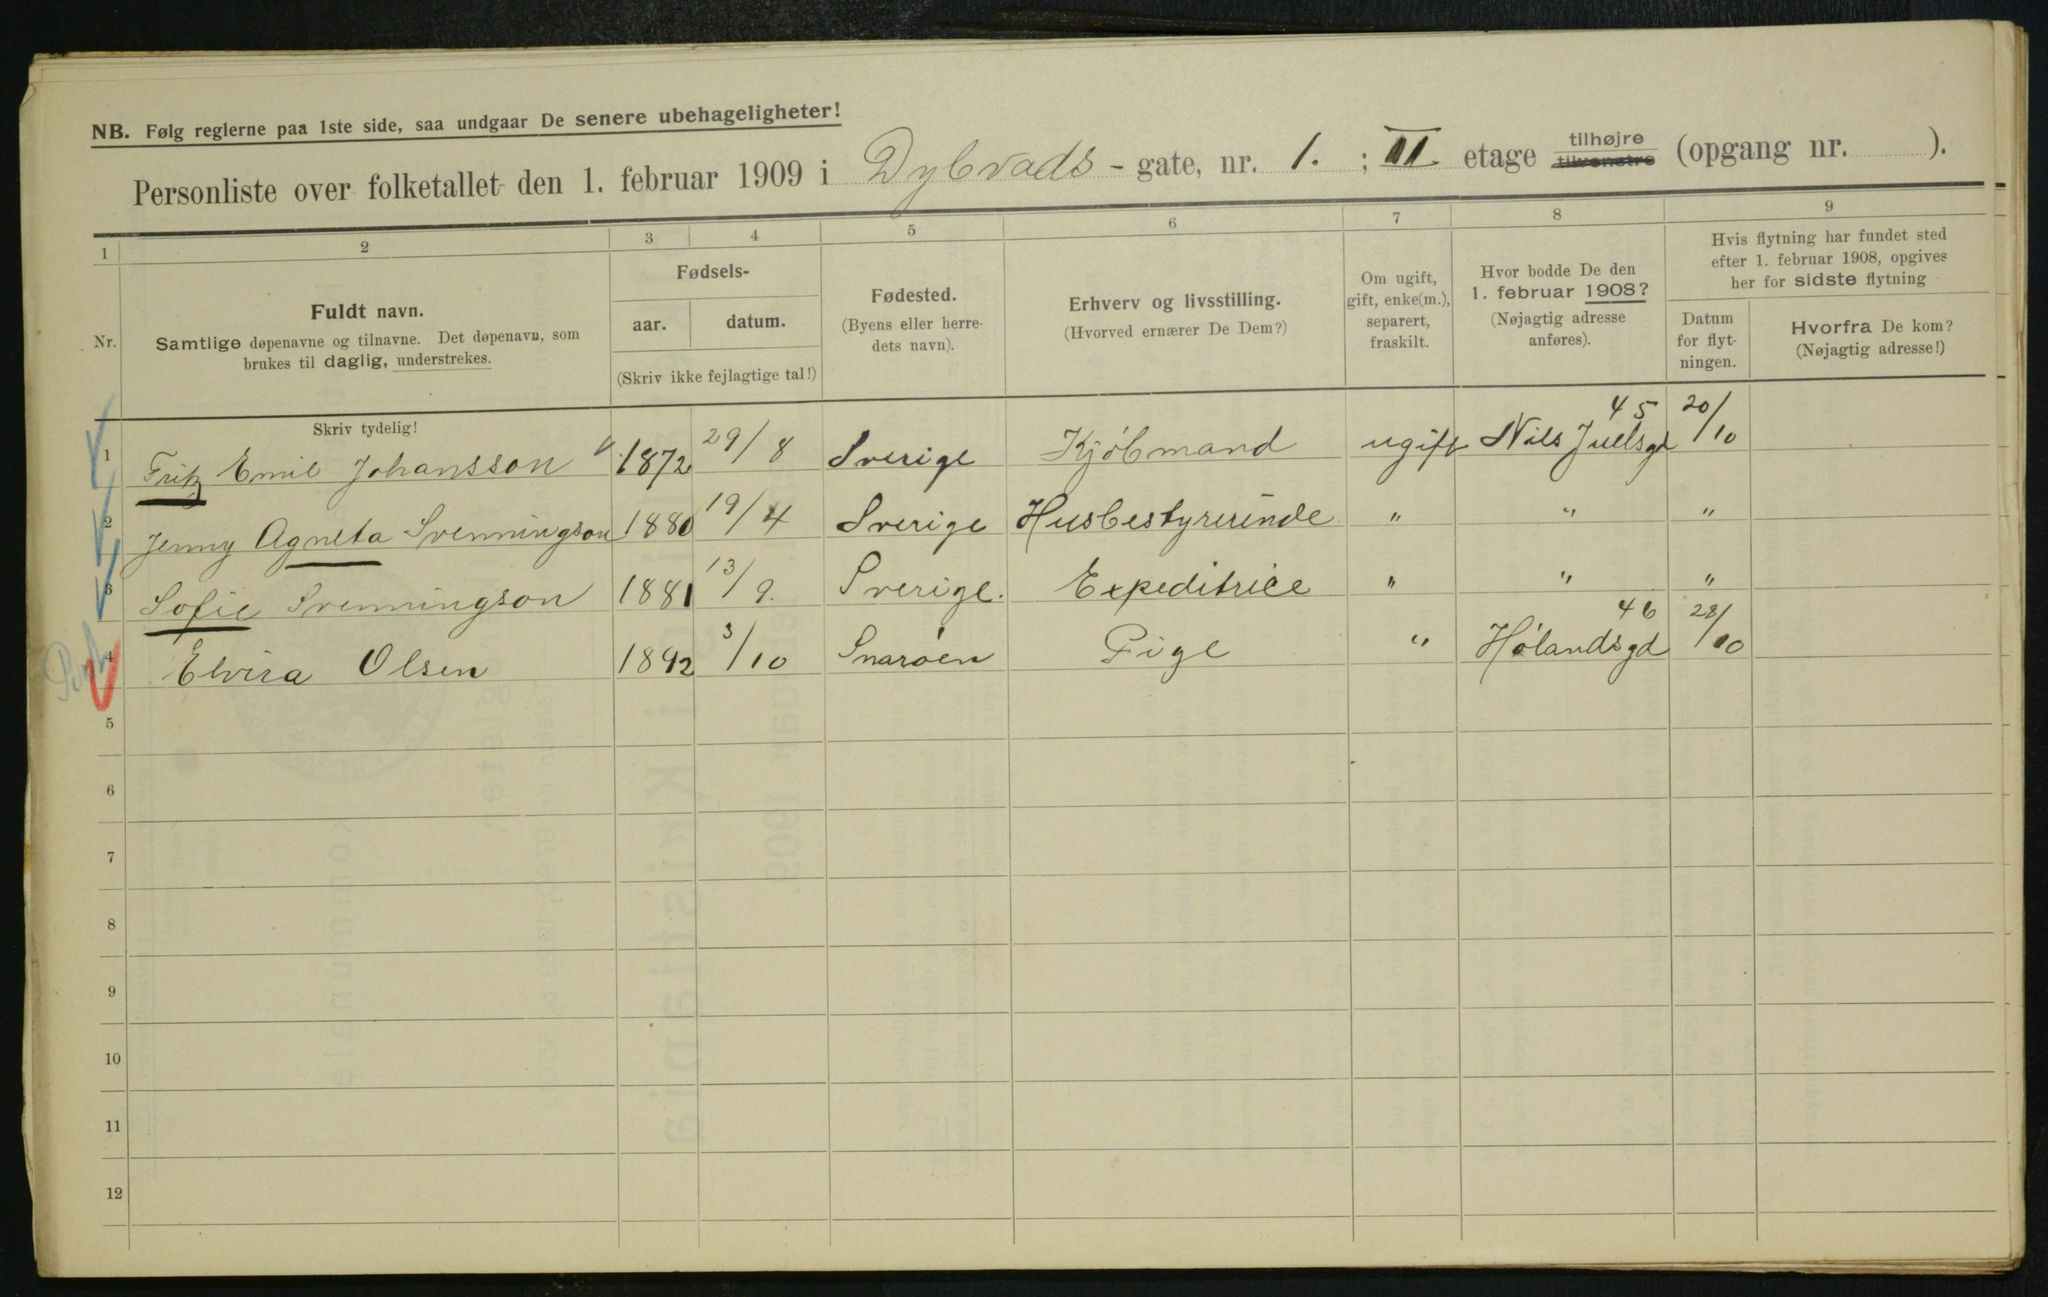 NB. Følg reglerne paa 1ste side, saa undgaar De senere ubehageligheter!
Personliste over folketallet den 1. februar 1909 i Dybvads-gate, nr. 1. ; III etage tilhøjre tilvenstre (opgang nr. ).
1 2 3 4 5 6 7 8 9
Nr.
Fuldt navn.
Samtlige døpenavne og tilnavne. Det døpenavn, som
brukes til daglig, understrekes.
Skriv tydelig!
Fødsels-
aar. datum.
(Skriv ikke fejlagtige tal!)
Fødested.
(Byens eller herre-
dets navn).
Erhverv og livsstilling.
(Hvorved ernærer De Dem?)
Om ugift,
gift, enke(m.),
separert,
fraskilt.
Hvor bodde De den
1. februar 1908?
(Nøjagtig adresse
anføres).
Hvis flytning har fundet sted
efter 1. februar 1908, opgives
her for sidste flytning
Datum
for flyt-
ningen.
Hvorfra De kom?
(Nøjagtig adresse!)
1 Fritz Emil Johansson 1872 29/8 Sverige Kjøbmand ugift Nils Juelsgd 45 20/10
2 Jenny Agneta Svenningson 1880 19/4 Sverige Husbestyrerinde " " "
3 Sofie Svenningson 1881 13/9. Sverige. Expeditrice " " "
4 Elvira Olsen 1892 3/10 Snarøen Pige " Hølandsgd 46 28/10
5
6
7
8
9
10
11
12